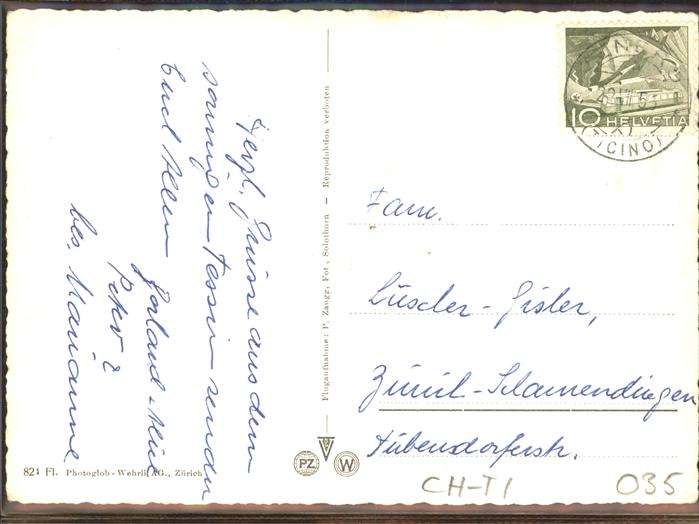 Herzl. Grüsse aus dem
sonnigen Tessin senden
Euch Allen
Peter &
bes. Marianne
Flugaufnahme: P. Zaugg, Fot., Solothurn – Reproduktion verboten
HELVETIA
10
(TICINO)
Fam.
Lüscher-Gisler,
Zürich-Schwamendingen
Dübendorferstr.
PZ
W
824 Fl. Photoglob-Wehrli AG., Zürich
CH-TI
035